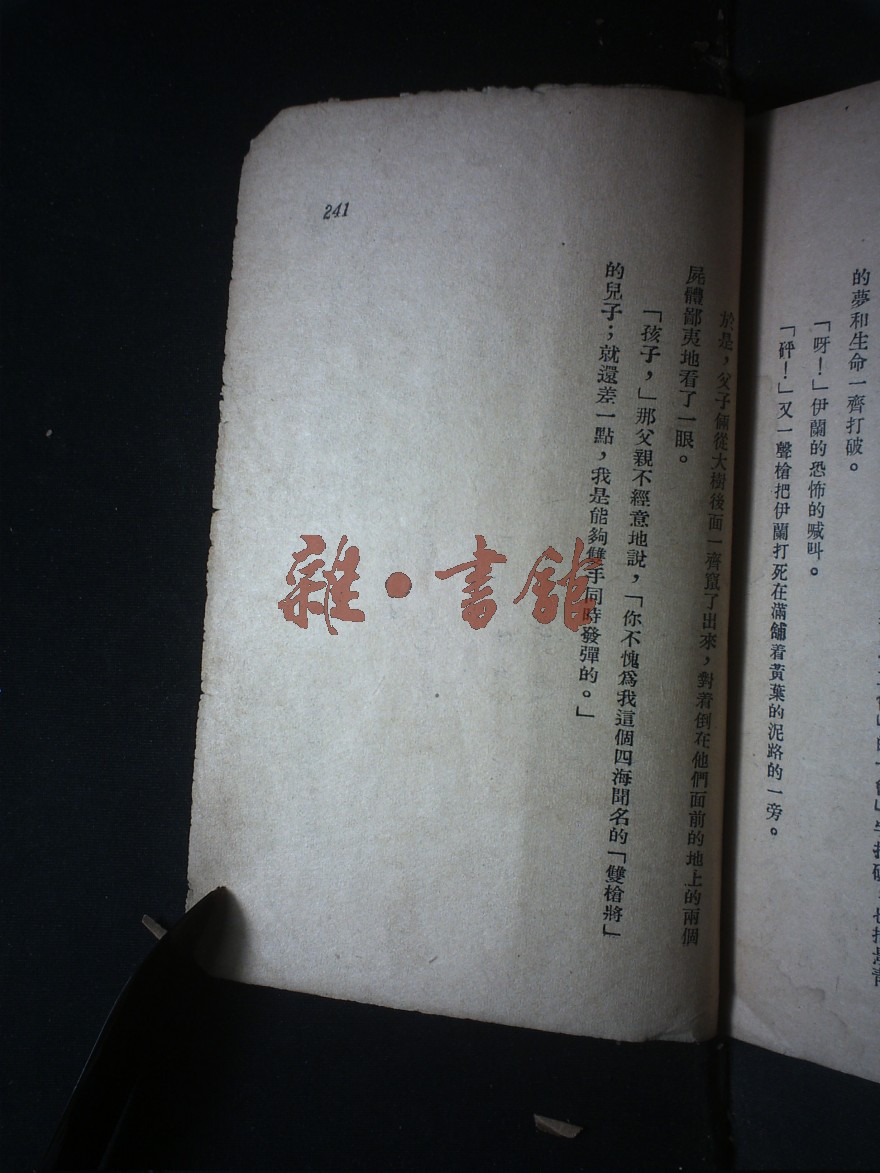 的夢和生命一齊打破。
「呀！」伊蘭的恐怖的喊叫。
「砰！」又一聲槍把伊蘭打死在滿舖着黃葉的泥路的一旁。
於是，父子倆從大樹後面一齊竄了出來，對着倒在他們面前的地上的兩個
屍體鄙夷地看了一眼。
「孩子，」那父親不經意地說，「你不愧爲我這個四海聞名的「雙槍將」
的兒子；就還差一點，我是能夠雙手同時發彈的。」
241
雜·書館